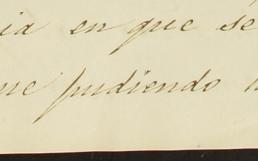 ia en que se
ue pudiendo